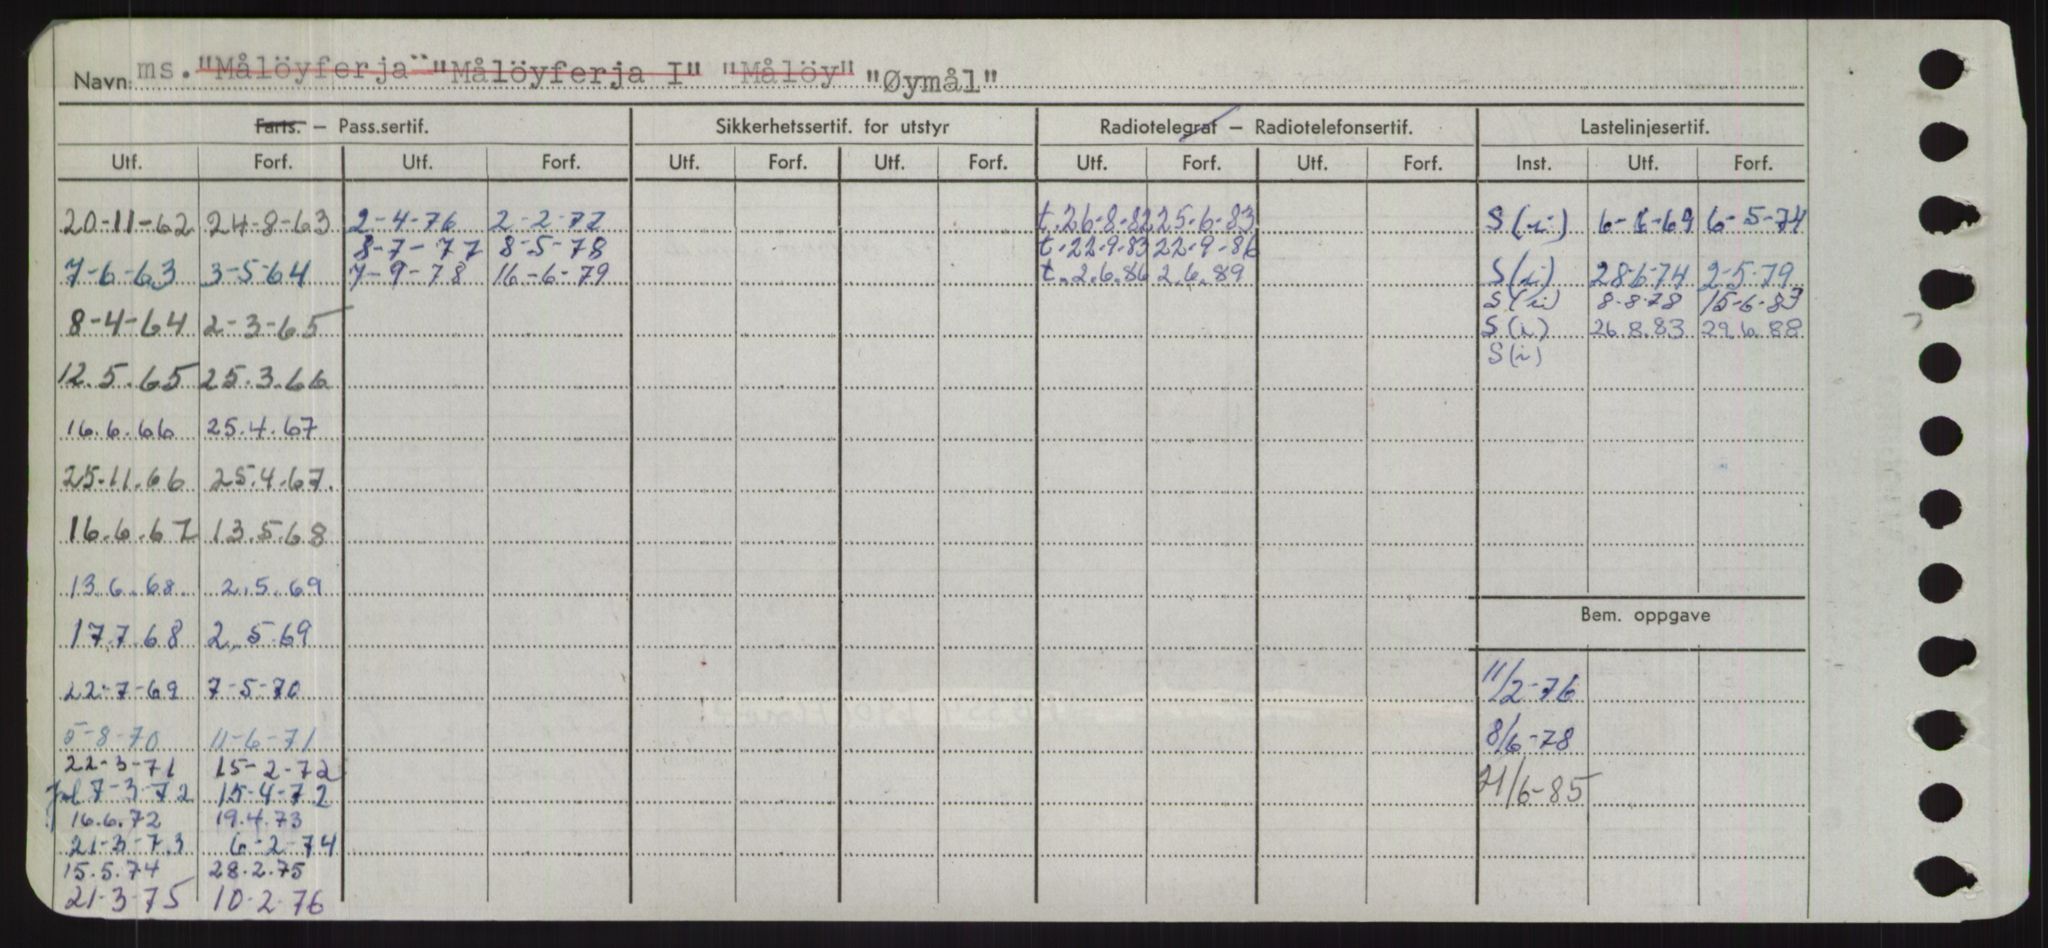 Navn: ms. "Målöyferja" "Målöyferja I" "Målöy" "Øymål"
Farts. – Pass.sertif. Sikkerhetssertif. for utstyr Radiotelegraf – Radiotelefonsertif. Lastelinjesertif.
Utf. Forf. Utf. Forf. Utf. Forf. Utf. Forf. Utf. Forf. Utf. Forf. Inst. Utf. Forf.
20-11-62 24-8-63 2-4-76 2-2-77 t.26-8-82 25-6-83 S(i) 6-6-69 6-5-74
8-7-77 8-5-78 t.22.9.83 22-9-86
7-6-63 3-5-64 7-9-78 16-6-79 t.2.6.86 2.6.89 S(i) 28-6-74 2-5-79
S(i) 8-8-78 15-6-83
8-4-64 2-3-65 S(i) 26.8.83 29.6.88
S(i)
12.5.65 25.3.66
16.6.66 25.4.67
25.11.66 25.4.67.
16.6.67 13.5.68
13.6.68. 2.5.69
Bem. oppgave
17.7.68 2.5.69
22-7-69 7-5-70 11/2-76
5-8-70 11-6-71 8/6-78
22-3-71 15-2-72
7-3-72 15-4-72 21/6-85
16.6.72 19.4.73
21-3-73 6-2-74
15.5.74 28.2.75
21-3-75 10-2-76